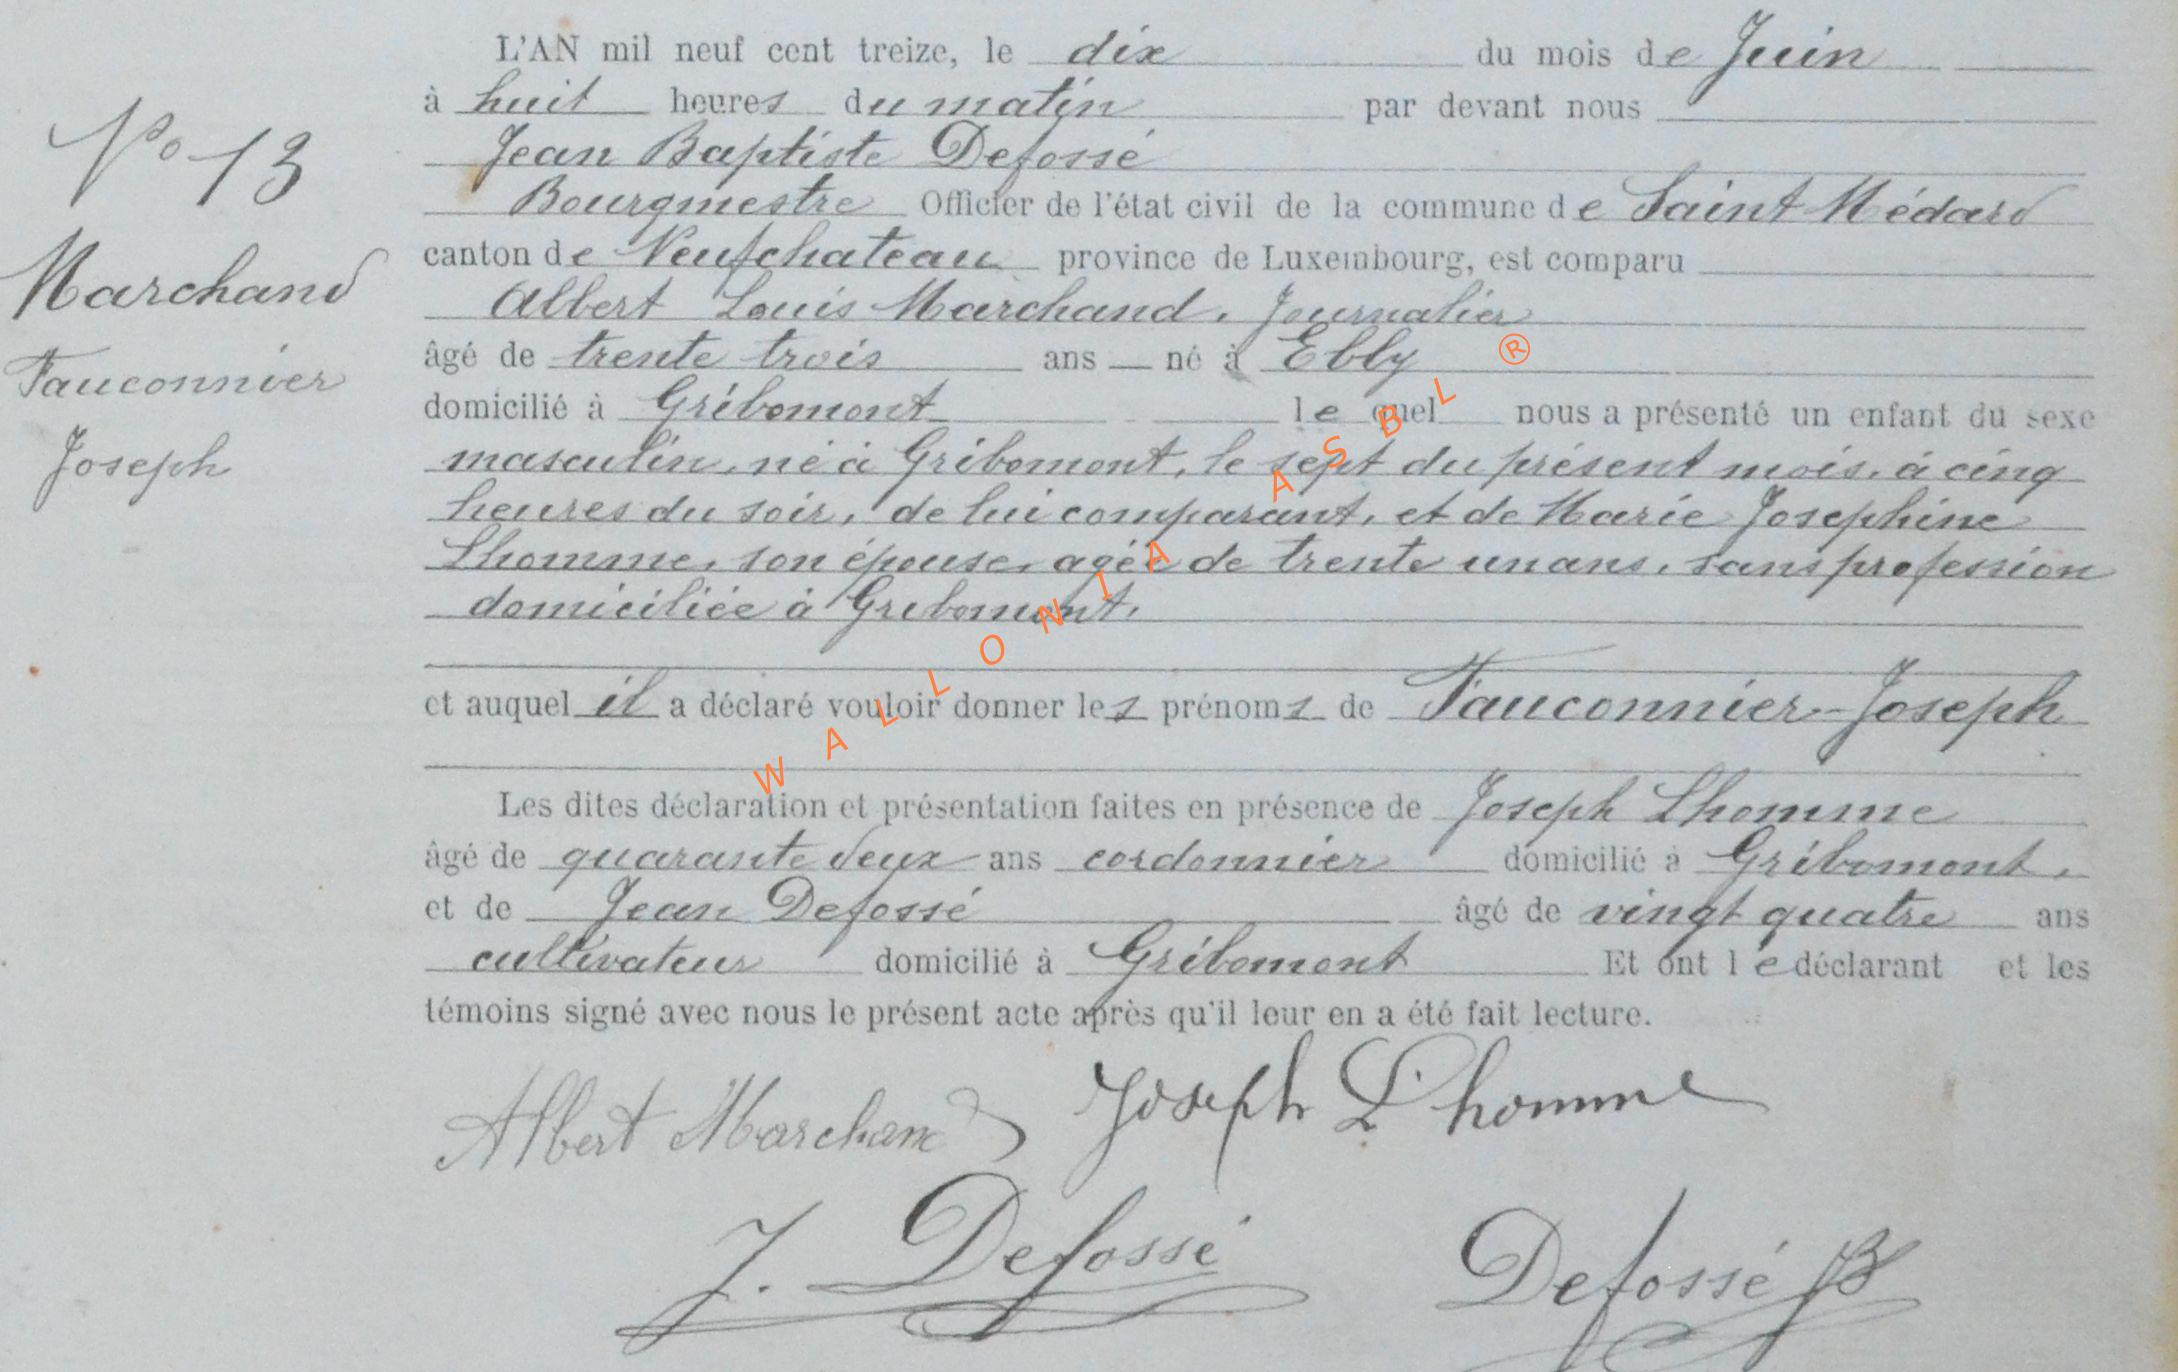 N° 13
Marchand
Fauconnier
Joseph
L'AN mil neuf cent treize, le dix du mois de Juin
à huit heures du matin par devant nous
Jean Baptiste Defossé
Bourgmestre Officier de l'état civil de la commune de Saint Médard
canton de Neufchateau province de Luxembourg, est comparu
Albert Louis Marchand, Journalier
âgé de trente trois ans né à Ebly
domicilié à Gribomont lequel nous a présenté un enfant du sexe
masculin, né à Gribomont, le sept du présent mois, à cinq
heures du soir, de lui comparant, et de Marie Josephine
Lhomme, son épouse, agée de trente un ans, sans profession
domiciliée à Gribomont.
et auquel il a déclaré vouloir donner les prénoms de Fauconnier-Joseph
Les dites déclaration et présentation faites en présence de Joseph Lhomme
âgé de quarante deux ans cordonnier domicilié à Gribomont,
et de Jean Defossé âgé de vingt quatre ans
cultivateur domicilié à Gribomont Et ont le déclarant et les
témoins signé avec nous le présent acte après qu'il leur en a été fait lecture.
Albert Marchand Joseph L'homme
J. Defossé Defossé JB
WALLONIA ASBL ®